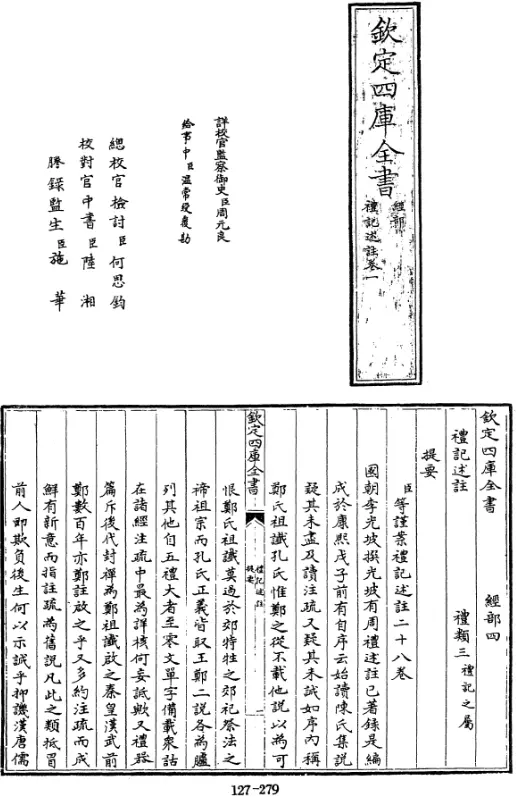 欽定四庫全書
經部
禮記述註卷一
詳校官監察御史臣周元良
給事中臣溫常綬覆勘
總校官檢討臣何思鈞
校對官中書臣陸湘
謄錄監生臣施華
欽定四庫全書 經部四
禮記述註 禮類三禮記之屬
提要
臣等謹案禮記述註二十八卷
國朝李光坡撰光坡有周禮述註已著錄是編
成於康熙戊子前有自序云始讀陳氏集說
疑其未盡及讀注疏又疑其未誠如序內稱
鄭氏祖讖孔氏惟鄭之從不載他說以為可
欽定四庫全書
禮記述註
提要
一
恨鄭氏祖讖莫過於郊特牲之郊祀祭法之
禘祖宗而孔氏正義皆取王鄭二說各為臚
列其他自五禮大者至零文單字備載衆詁
在諸經注疏中最為詳核何妄詆歟又禮器
篇斥後代封禪為鄭祖讖啟之秦皇漢武前
鄭數百年亦鄭註啟之乎又多約注疏而成
鮮有新意而指註疏為舊說凡此之類抵冒
前人即欺負後生何以示誠乎抑譏漢唐儒
127-279